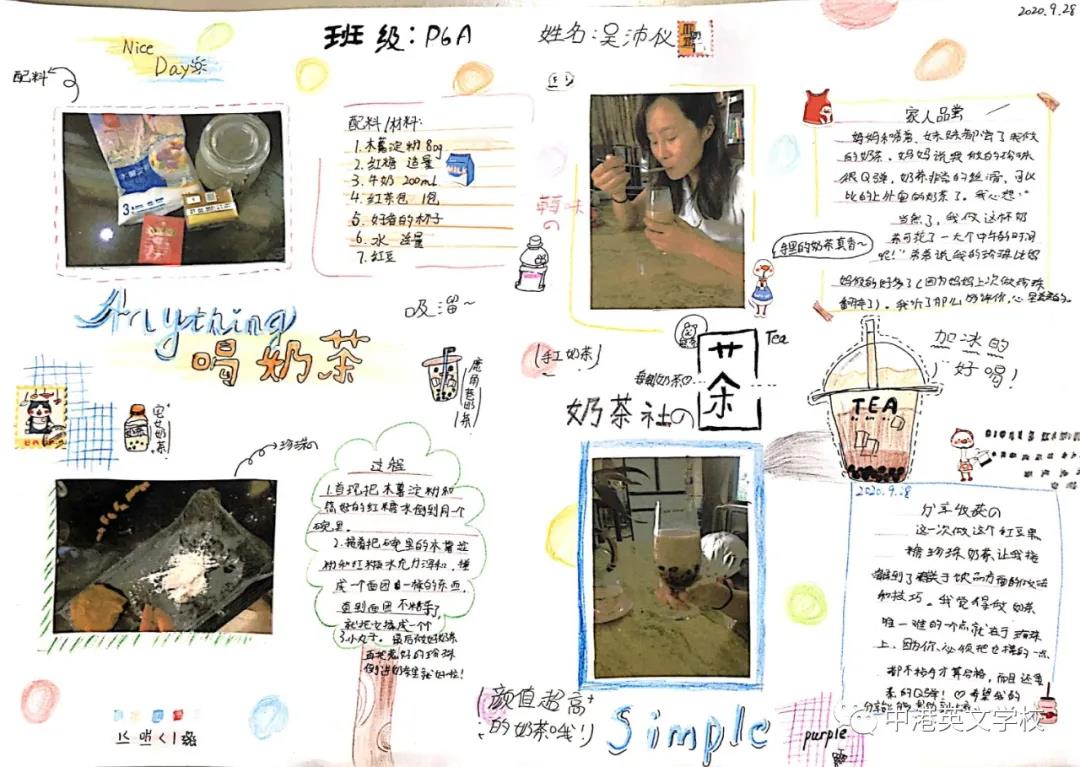 2020.9.28
Nice
Day
班级:P6A
姓名:吴沛仪
配料
配料/材料:
1.木薯淀粉 80g
2.红糖 适量
3.牛奶 200ml
4.红茶包 1包
5.好看的杯子
6.水 适量
7.红豆
MILK
家人品尝
妈妈和爸爸、妹妹都尝了我做
的奶茶，妈妈说我做的珍珠
很Q弹，奶茶非常的丝滑，可以
比的上外面的奶茶了。我心想:"
当然了，我做这杯奶
茶可花了一大个中午的时间
呢!"爸爸说我的珍珠比妈
妈做的好多了(因为妈妈上次做珍珠
翻车了)。我听了那么的评价，心里
味の
Anything
喝奶茶
吸溜~
(手工奶茶)
奶茶社の
茶
Tea
加冰的
好喝!
TEA
鹿角巷奶茶
宅女奶茶
珍珠の
过程
1.首先把木薯淀粉和
好的红糖水倒到同一个
碗里。
2.接着把碗里的木薯淀
粉和红糖水
成一个面团一样的东西，
直到面团不粘手了
就把它搓成一个个
小丸子。最后做好奶茶
再把煮好的珍珠
倒进奶茶里就好啦!
2020.9.28
分享收获の
这一次做这个红豆黑
糖珍珠奶茶让我接
触到了关于饮品方面的
和技巧。我觉得做奶茶
唯一难的一个点就在于珍珠
上，因为你必须把它揉的一点
都不粘手才算合格，而且还要
煮的Q弹! ♡希望我的
(颜值超高
的奶茶哦!)
Simple
purple
中港英文学校